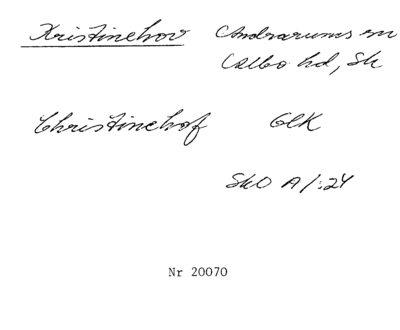 Kristinehov Andrarums sn
Albo hd, Sk
Christinehof GEK
SkO A1:24
Nr 20070